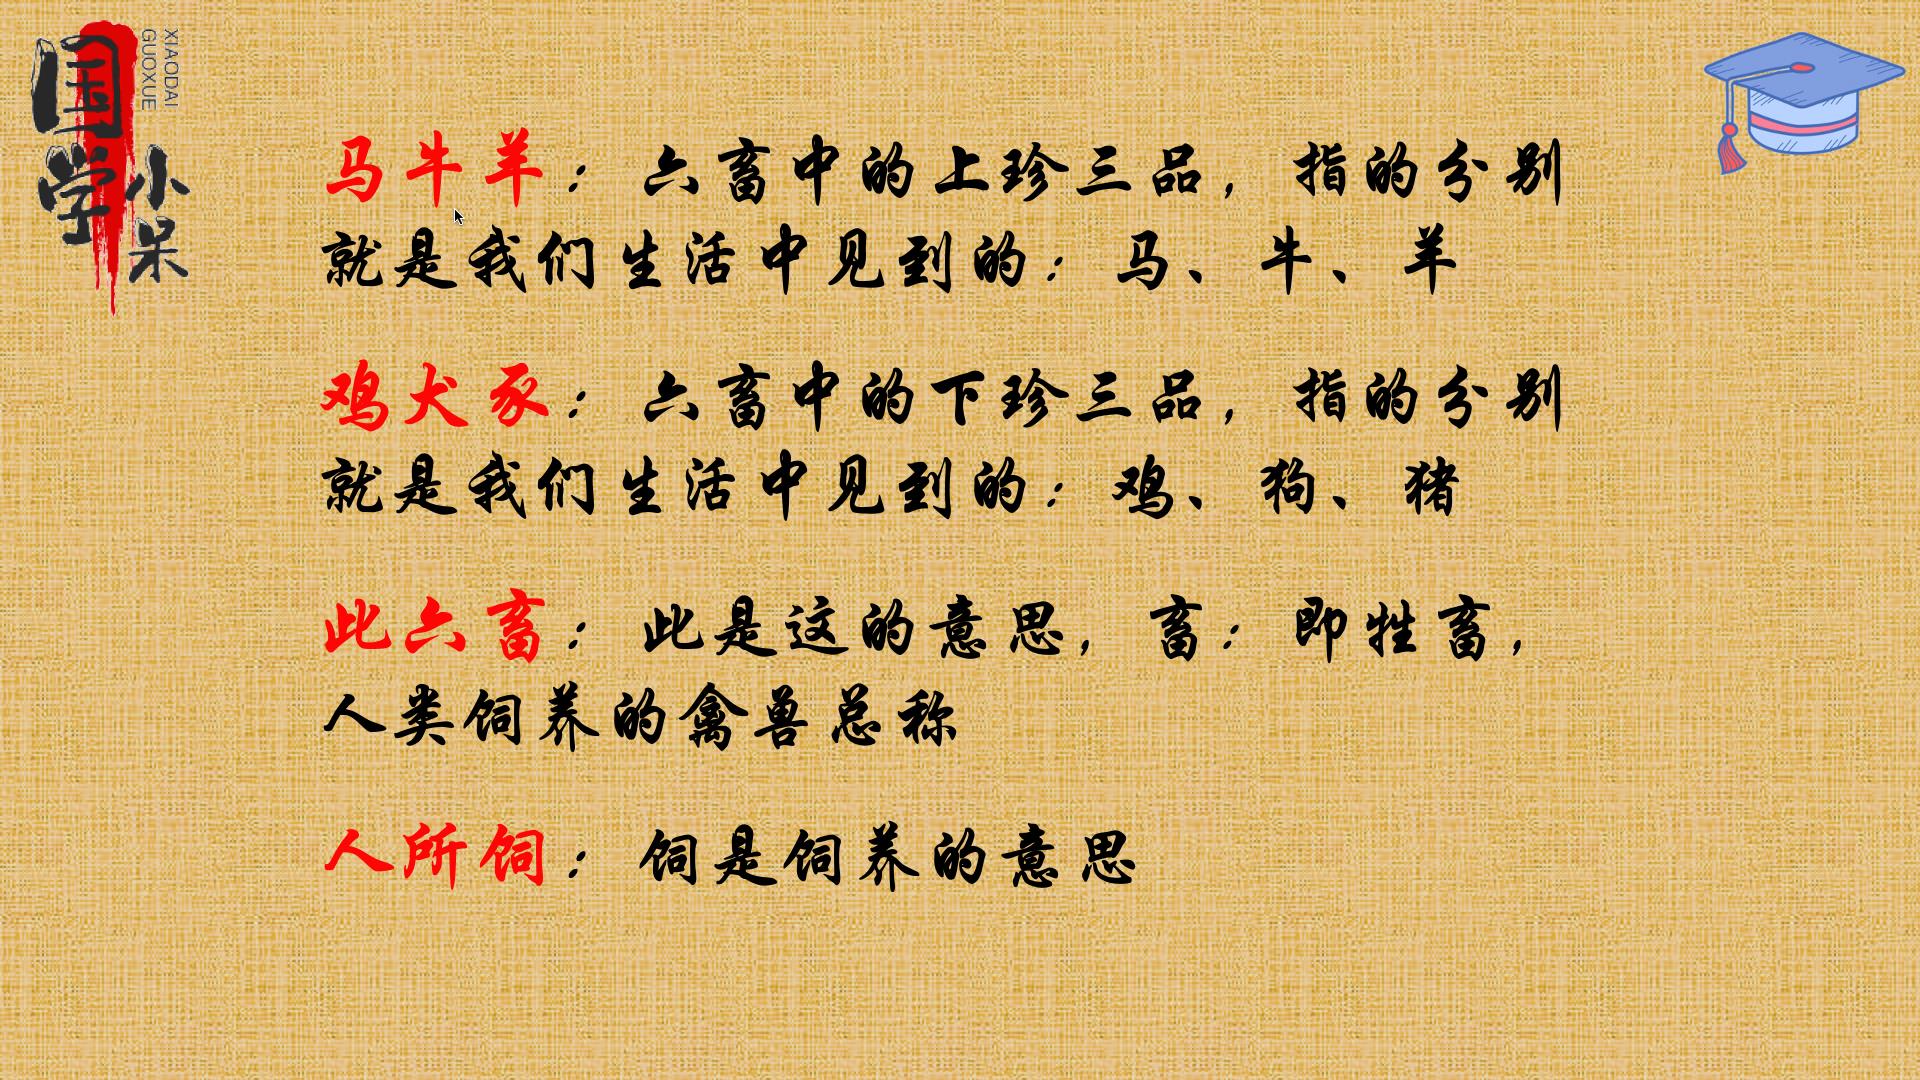 国学
小呆
XIAODAI
GUOXUE
马牛羊：六畜中的上珍三品，指的分别
就是我们生活中见到的：马、牛、羊
鸡犬豕：六畜中的下珍三品，指的分别
就是我们生活中见到的：鸡、狗、猪
此六畜：此是这的意思，畜：即牲畜，
人类饲养的禽兽总称
人所饲：饲是饲养的意思